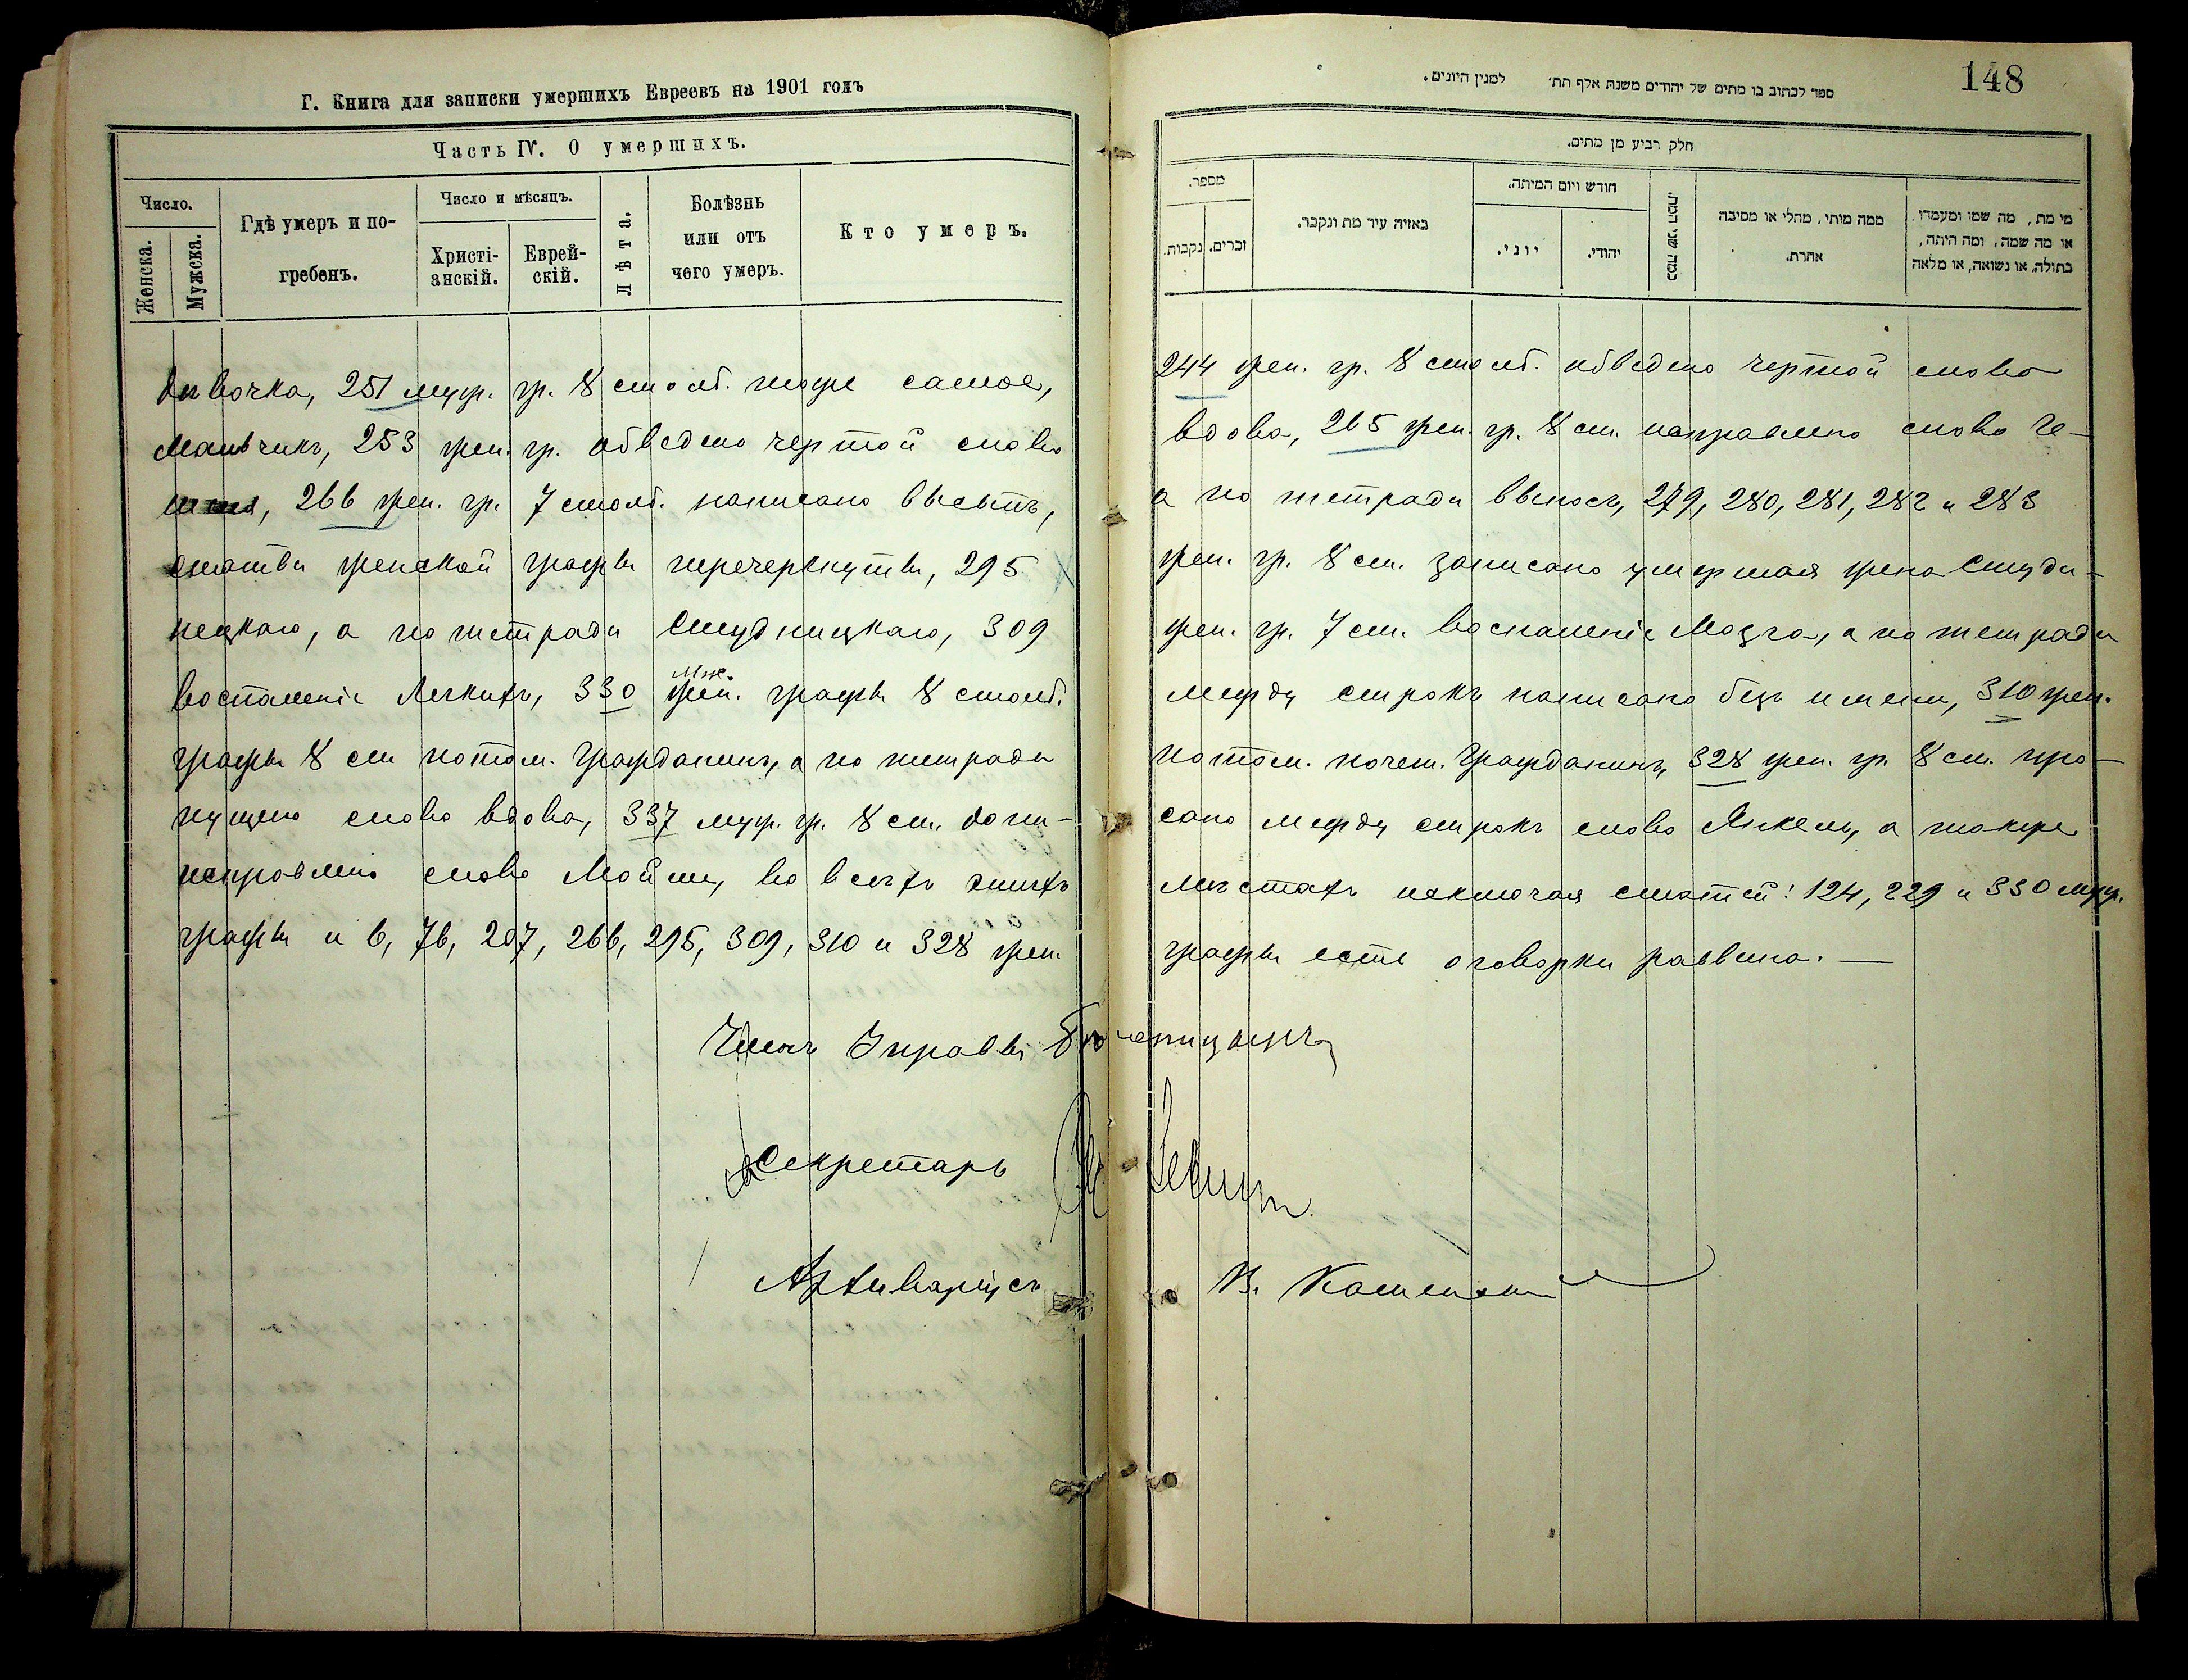 Г. Книга для записки умершихъ Евреевъ на 1901 годъ
Часть IV. О умершихъ.
Число.
Женска.
Мужска.
Гдѣ умеръ и по-
гребенъ.
Число и мѣсяцъ.
Христі-
анскій.
Еврей-
скій.
Лѣта.
Болѣзнь
или отъ
чего умеръ.
Кто умеръ.
148
ספר לכתוב בו מתים של יהודים משנת אלף תת׳ למנין היונים.
חלק רביע מן מתים.
מספר.
נקבות.
זכרים.
באיזה עיר מת ונקבר.
חודש ויום המיתה.
יוני.
יהודי.
כמה שני המת.
ממה מותו, מחלי או מסיבה
אחרת.
מי מת, מה שמו ומעמדו
או מה שמה, ומה היתה,
בתולה, או נשואה, או מלאה
дѣвочка, 251 муж. гр. 8 столб. тоже самое, 244 жен. гр. 8 столб. обведено чертой слово
мальчикъ, 253 жен. гр. обведено чертой слово вдова, 265 жен. гр. 8 ст. исправлено слово Ге-
266 жен. гр. 7 столб. написано а по тетради 279, 280, 281, 282 и 283
статьи женской графы перечеркнуты, 295 жен. гр. 8 ст. записано умершая жена Студи-
нецкаго, а по тетради Студницкаго, 309 жен. гр. 7 ст. воспаленіе мозга, а по тетради
воспаленіе легкихъ, 330 муж. жен. графы 8 столб. между строкъ написано безъ имени, 310 жен.
графы 8 ст. потом. гражданинъ, а по тетради потом. почет. гражданинъ, 328 жен. гр. 8 ст. про-
пущено слово вдова, 337 муж. гр. 8 ст. допи-сано между строкъ слово Янкель, а также
исправлено слово во всѣхъ этихъ мѣстахъ исключая статей: 124, 229 и 330 муж.
графы и 6, 76, 207, 266, 295, 309, 310 и 328 жен. графы есть оговорки раввина. —
Членъ Управы
Секретарь
Архиваріусъ В.